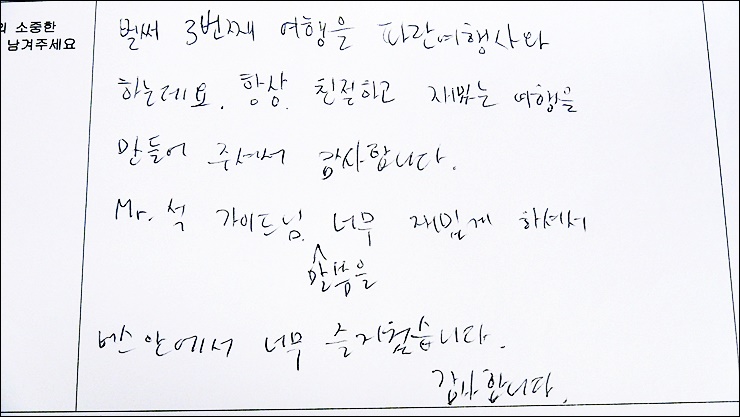 의 소중한
남겨주세요
벌써 3번째 여행을 파란여행사와
하는데요. 항상 친절하고 재밌는 여행을
만들어 주셔서 감사합니다.
Mr. 석 가이드님 너무 재밌게 하셔서
말씀을
버스안에서 너무 즐거웠습니다.
감사합니다.